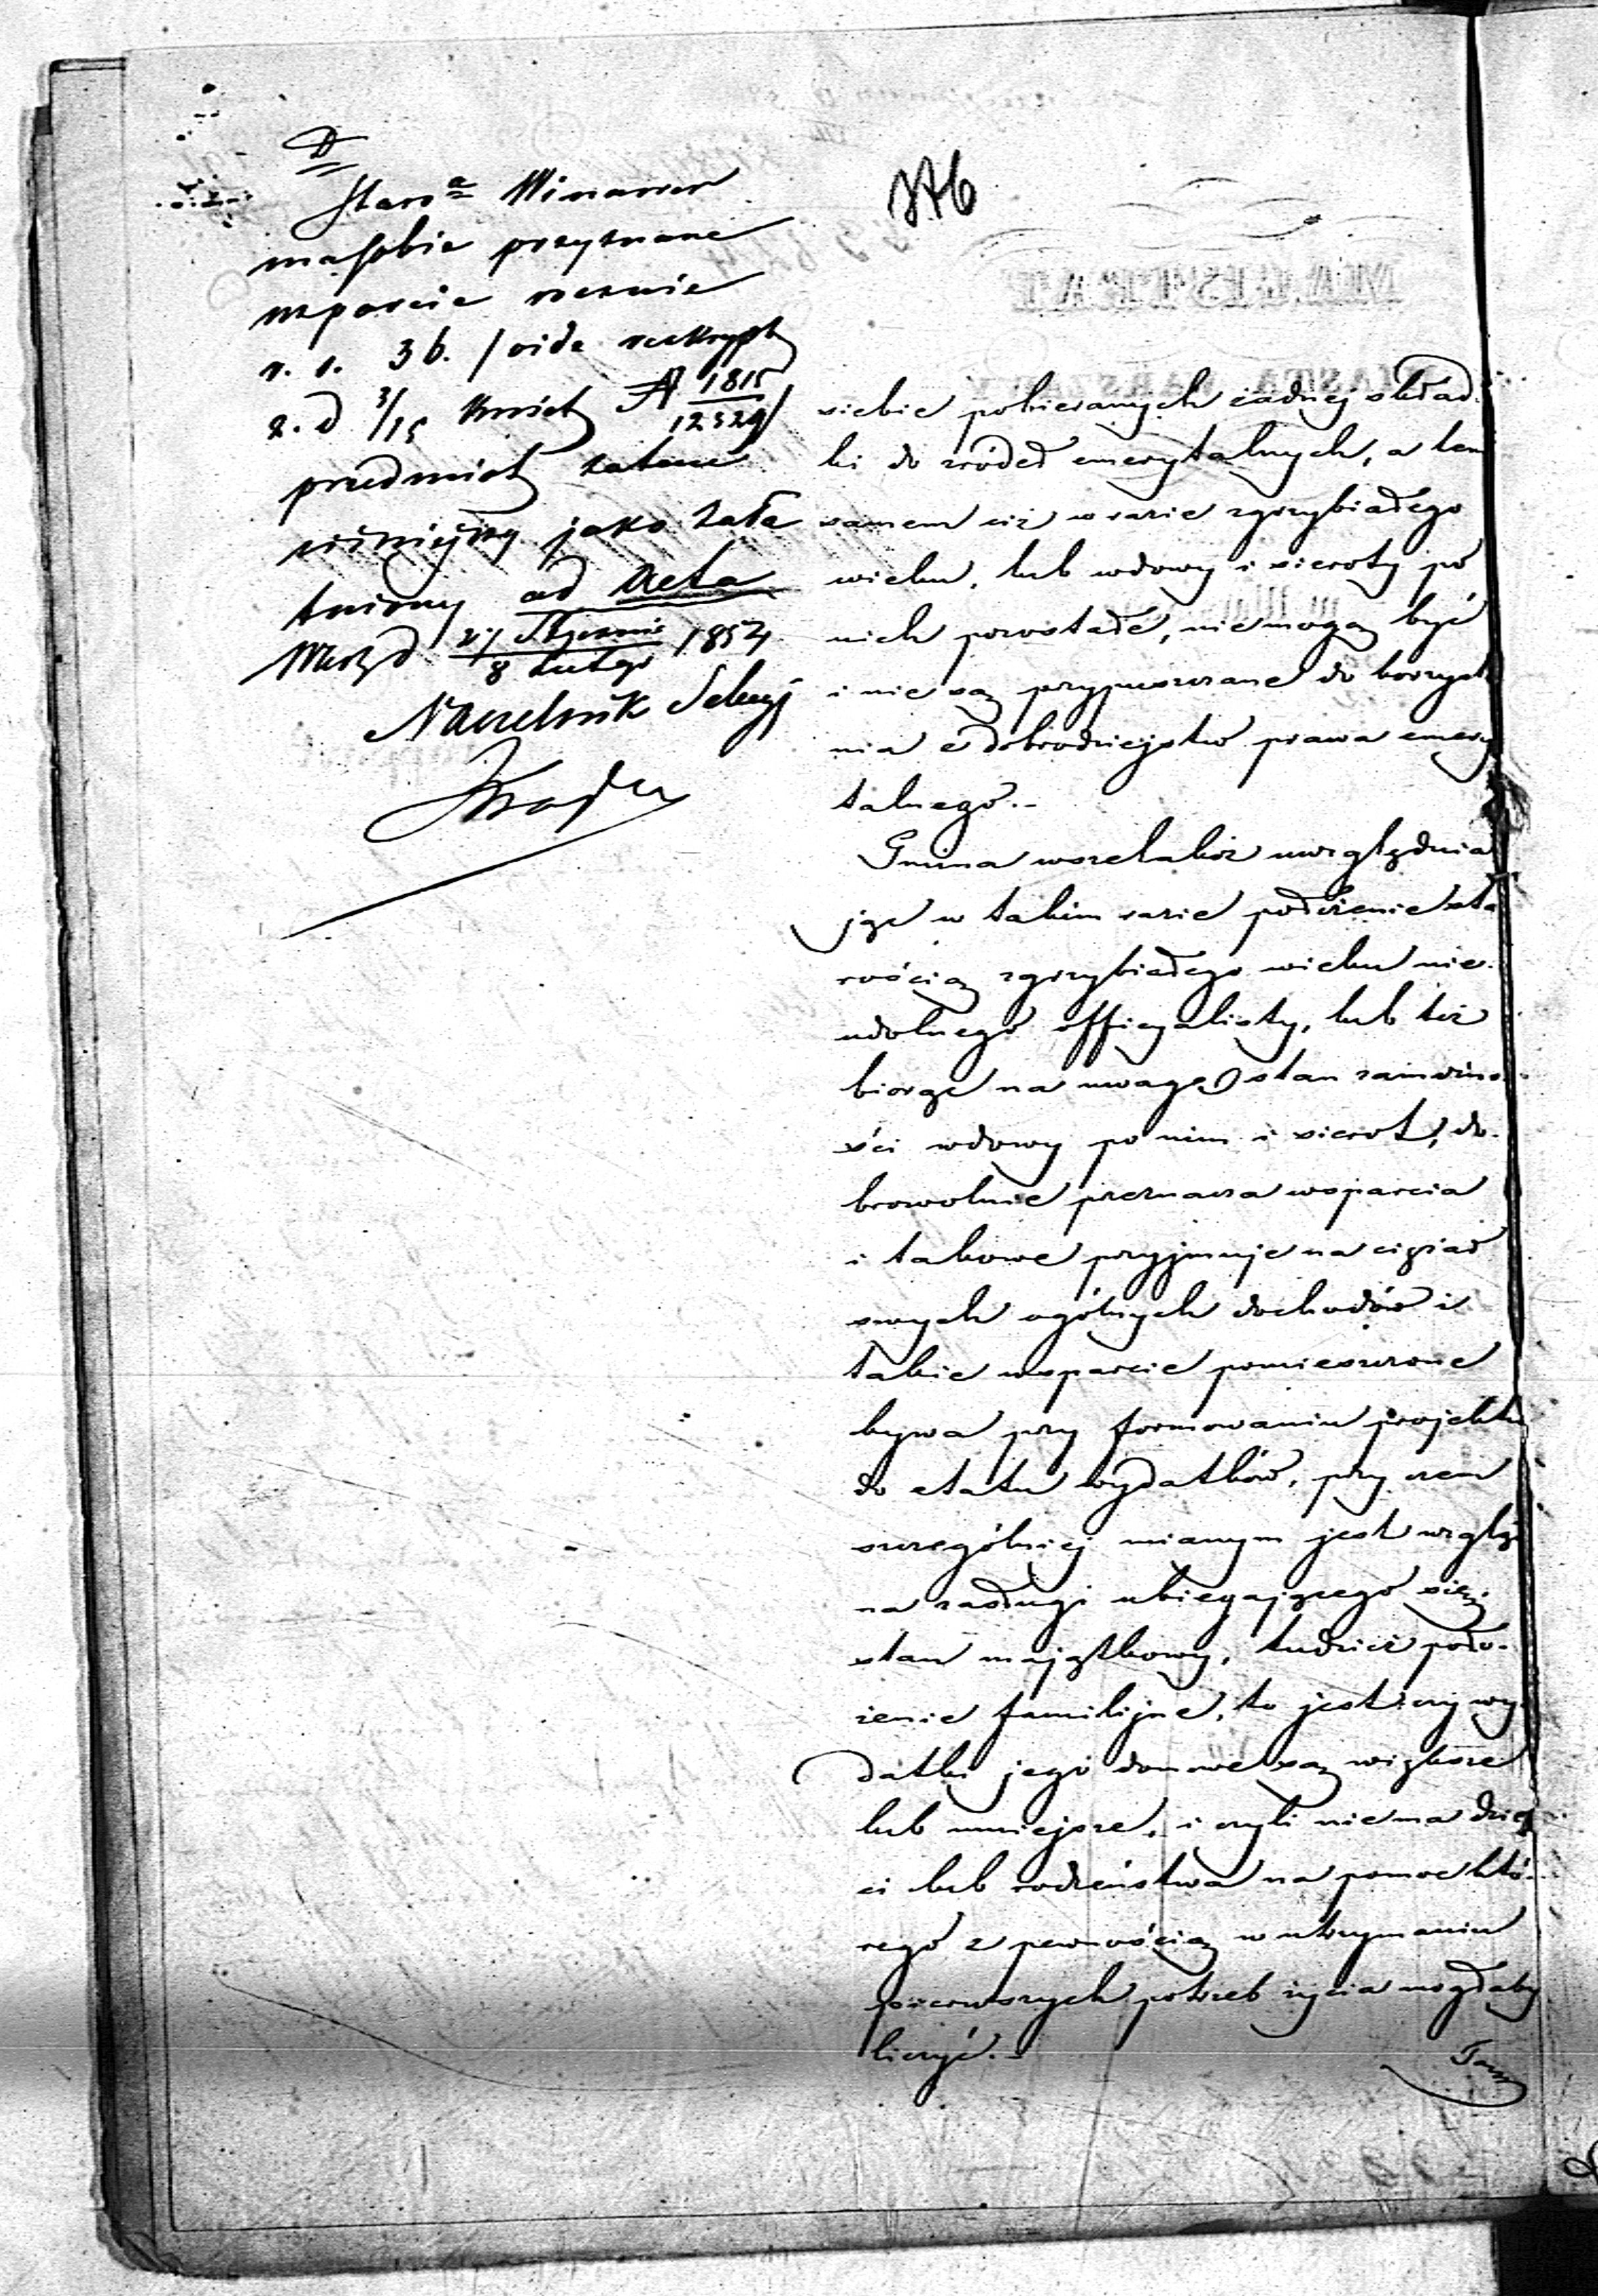 D
Staro<sup>a</sup> Minawer
ma sobie przyznane
wsparcie rocznie
r. s. 36. /vide reskrypt
z. d 3/15 Kwiet N 1815/12329/
przedmiot zatem
niniejszy jako zała
twiony ad acta
Warsz d 27 Stycznia/8 Lutego 1854
Naczelnik Sekcyj
376
siebie pobieranych żadnej skład
ki do zródeł emerytalnych, a tem
samem iż w razie zgrzybiałego
wieku, lub wdowy i sieroty po
nich pozostałe, niemogą być
i nie są przypuszczane do korzysta
nia z dobrodziejstw prawa emery
talnego.-
Gmina wszelakoż uwzględnia
jąc w takim razie położenie sta
rością zgrzybiałego wieku nie-
udolnego officyalisty, lub też
biorąc na uwagę stan zamożno-
ści wdowy po nim i sierot, do-
browolnie przeznacza wsparcia
i takowe przyjmuje na ciężar
swych ogólnych dochodów i
takie wsparcie pomieszczone
bywa przy formowaniu projektu
do etatu wydatków, przy czem
szczególniej mianym jest wzgląd
na zasługi ubiegającego się,
stan majątkowy, tudzież poło-
żenie familijne, to jest czy wy-
datki jego domowe są większe
lub mniejsze, i czyli niema dzie
ci lub rodzeństwa na pomoc któ-
rego z pewnością w utrzymaniu
pierwszych potrzeb życia mogłaby
liczyć.-